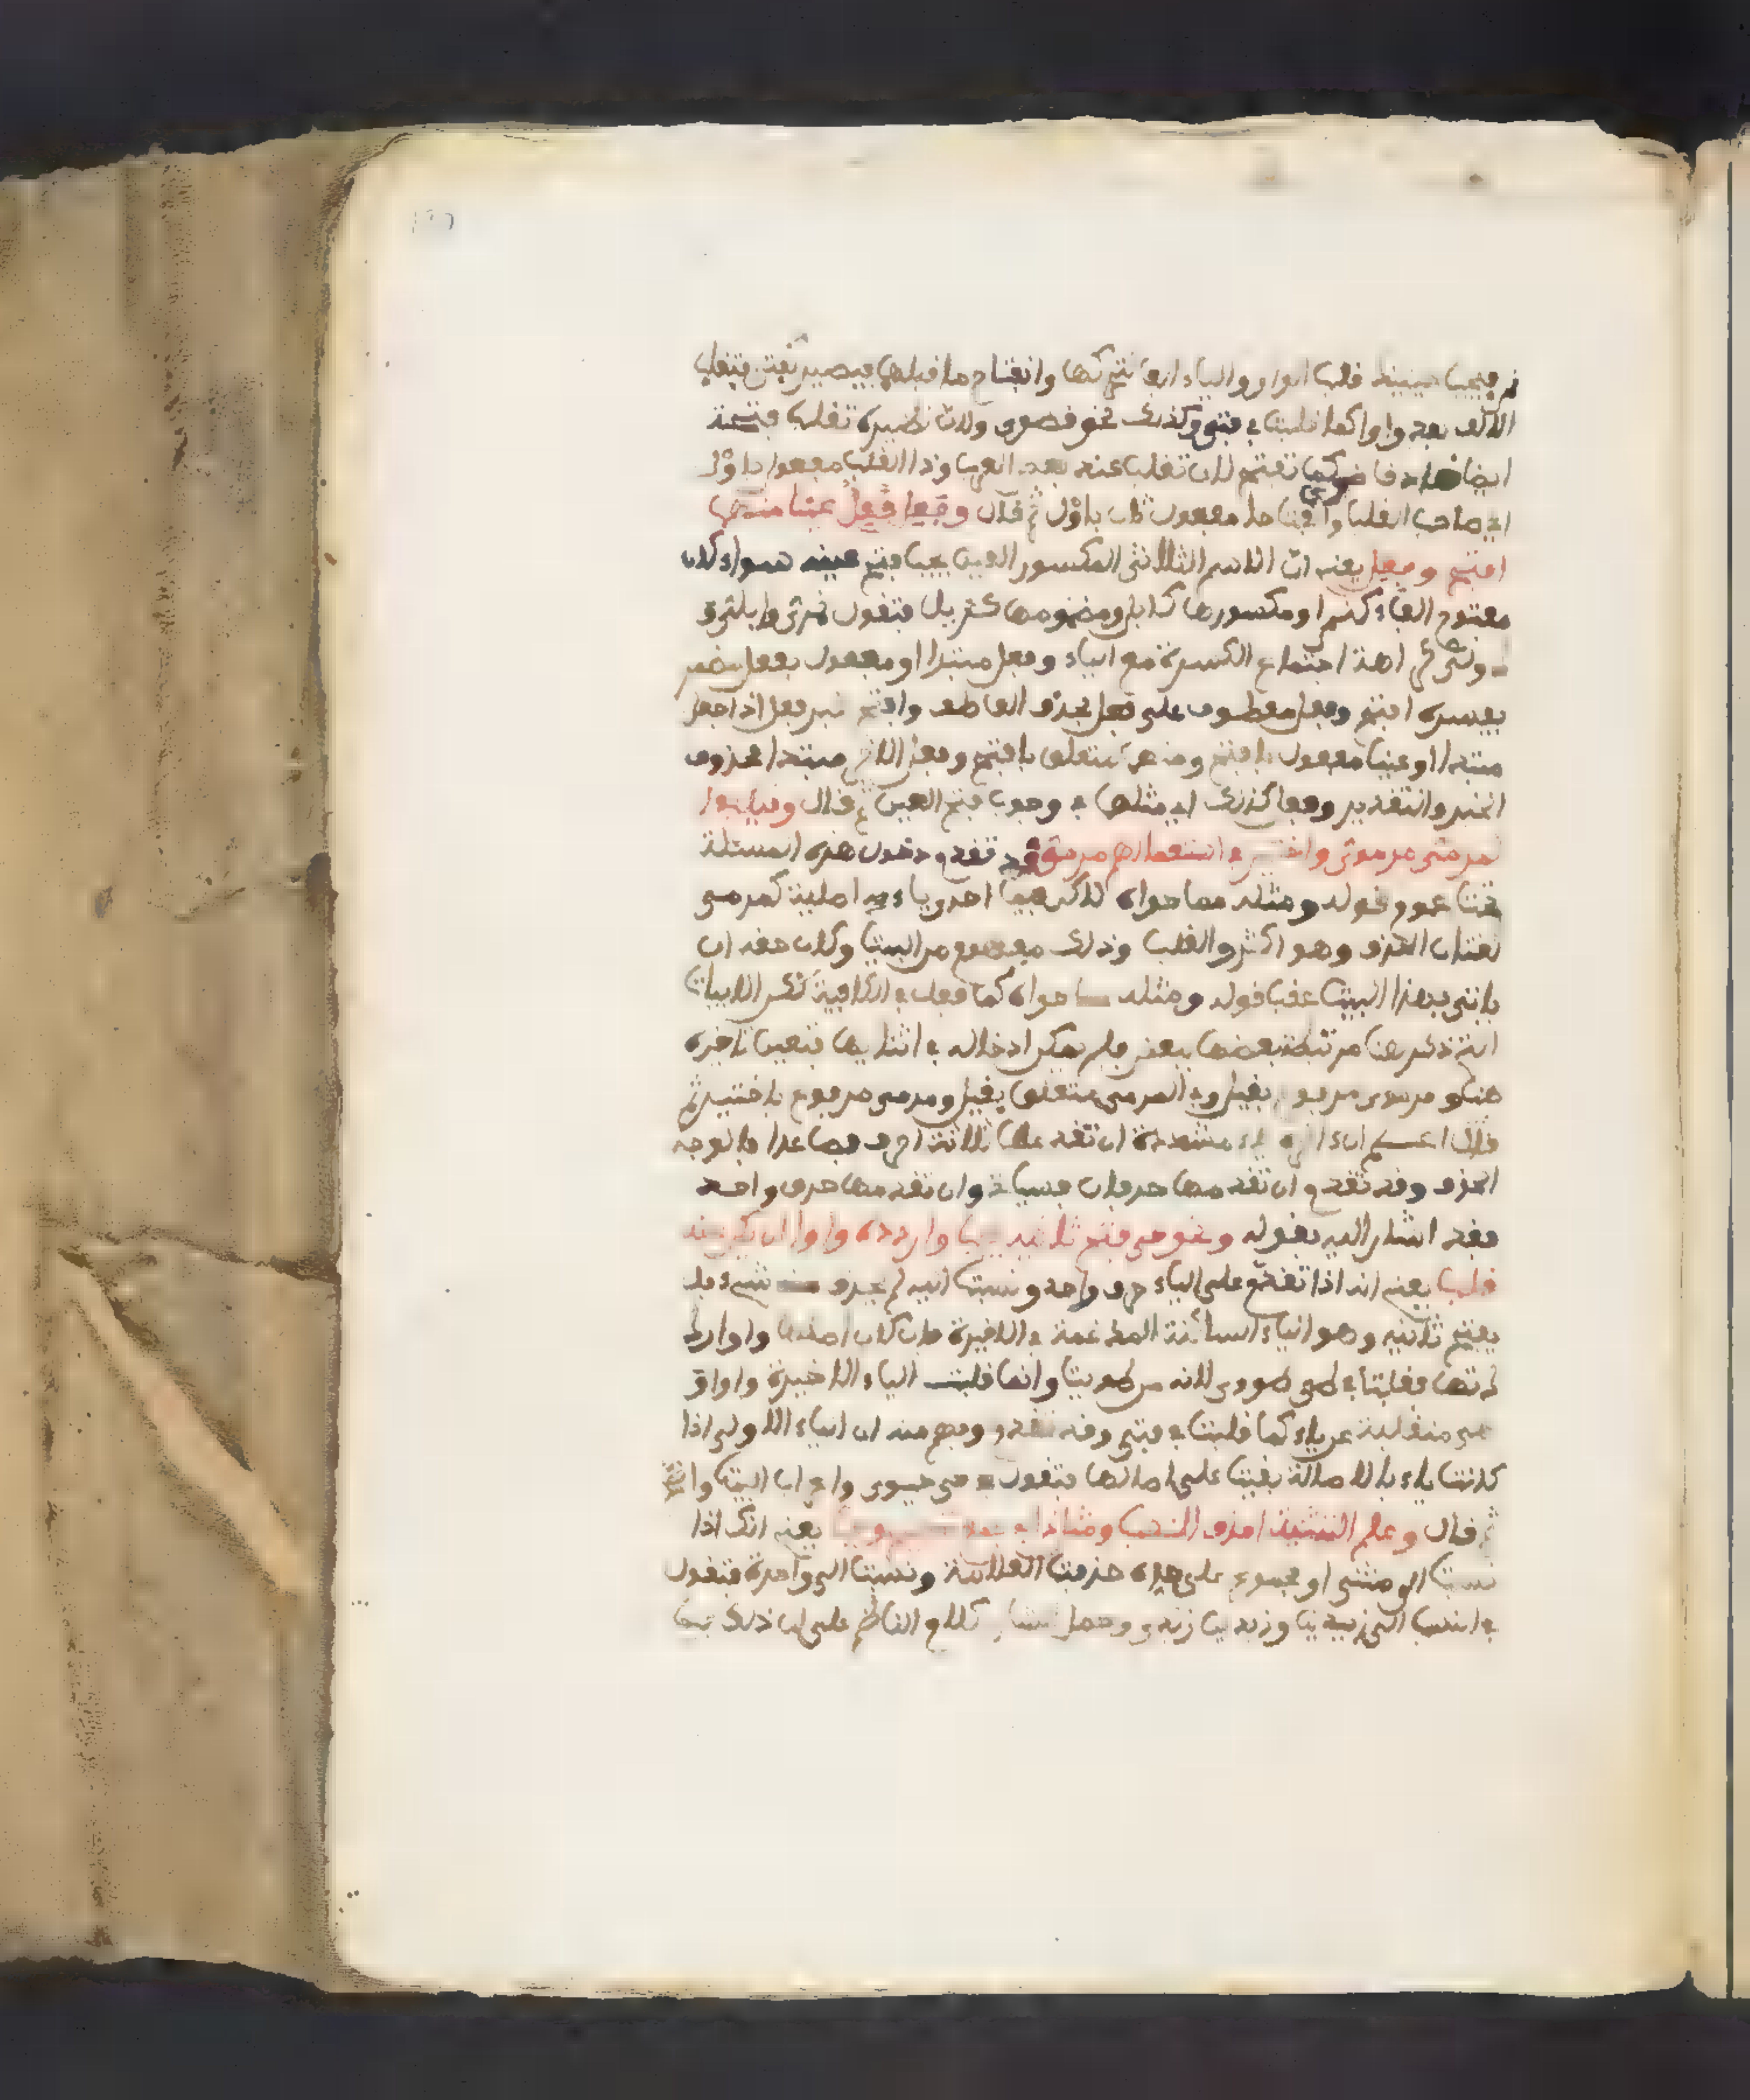 فيجب حينئذ قلب الواو والياء الفا لتحركها وانفتاح ما قبلها فيصير كفتى فتقلب
الالف بعد واوا كما قلبت في فتى وكذلك نحو قصوى ولان نظيره تغلب فتحة
ايضا قاض كما تفتح لان تغلب عنه بعد الفها وذا القلب مفعول باول
اي صاحب القلب وانفتاحا مفعول ثان باول ثم قال وفعل وفعل عينهما
افتح وفعل يعني ان الاسم الثلاثي المكسور العين يجب فتح عينه سواء كان
مفتوح الفاء كنمر او مكسورها كابل ومضمومها كدئل فتقول نمري وابلي و
ودئلي كراهة اجتماع الكسرة مع الياء وفعل مبتدا او مفعول بفعل مضمر
يفسره افتح وفعل معطوف على فعل بحذف العاطف وافتح خبر فعل اذا جعل
مبتدا او عينا مفعول بافتح ومنهما متعلق بافتح وفعل الاخير مبتدا محذوف
الخبر والتقدير وفعل كذلك اي مثلها في وجوب فتح العين ثم قال وقيل في
المرمي مرموي واختير في استعمالهم مرمي قد تقدم دخول هذه المسئلة
تحت عموم قوله ومثله مما حواه لاكن فيما احدى ياءيه اصلية كمرمى
لغتان الحذف وهو اكثر والقلب وذلك مفهوم من البيت وكان حقه ان
ياتي بهذا البيت عقب قوله ومثله مما حواه كما فعل في الكافية لكن الابيات
التي ذكر هنا مرتبطة بعضها ببعض فلم يمكن ادخاله في اثنايها فتعين تاخيره
هنا ومرموي مرفوع بقيل وفي المرمي متعلق بقيل ومرمي مرفوع باختير ثم
قال اعلم ان ما اخره ياء مشددة ان تقدمها ثلاثة احرف فصاعدا فالوجه
الحذف وقد تقدم وان تقدمها حرفان فسياتي وان تقدمها حرف واحد
فقد اشار اليه بقوله ونحو حي فتح ثانيه يجب واردده واوا ان يكن عنه
قلب يعني انه اذا تقدم على الياء حرف واحد ونسبت اليه لم يحذف منه شيء بل
يفتح ثانيه وهو الياء الساكنة المدغمة في الاخيرة فان كان اصلها واوا رد
لاصلها فقلت في طي طووي لانه من طويت وانما قلبت الياء الاخيرة واوا و
هي منقلبة عن ياء كما قلبت في فتى وقد تقدم وفهم منه ان الياء الاولى اذا
كانت ياء بالاصالة بقيت على اصالتها فتقول في حي حيوي واعراب البيت واضح
ثم قال وعلم التثنية احذف للنسب ومثل ذا في جمع تصحيح وجب يعني انك اذا
نسبت الى مثنى او مجموع على حده حذفت العلامة ونسبت الى واحده فتقول
في النسب الى زيدين وزيدين زيدي وحمل الشارح كلام الناظم على ان ذلك فيما